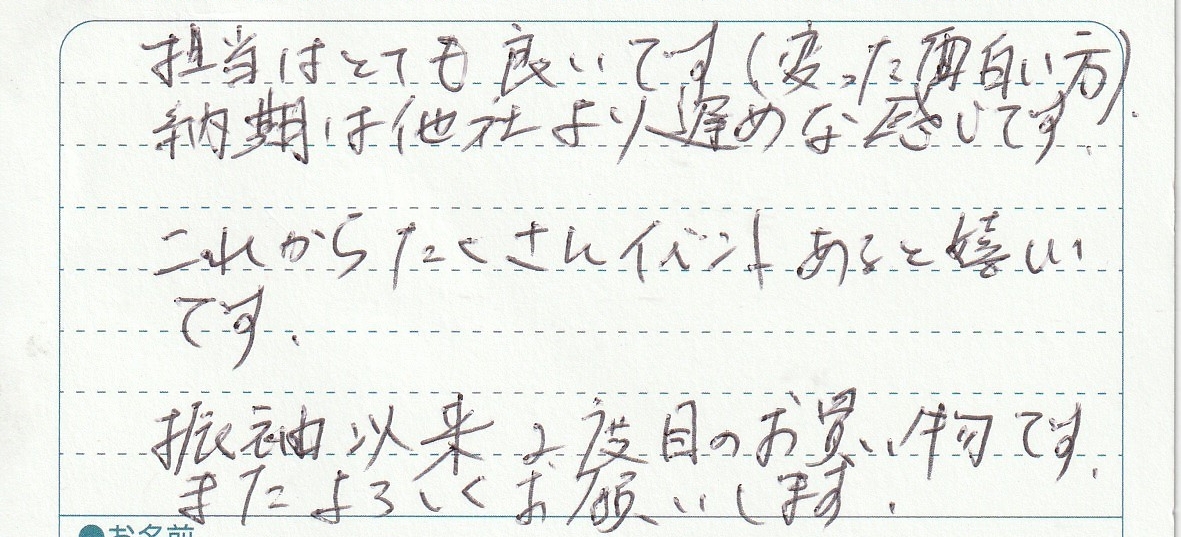 担当はとても良いです(変った面白い方).
納期は他社より遅めな感じです.
これからたくさんイベントあると嬉しい
です.
振袖以来2度目のお買い物です.
またよろしくお願いします.
●お名前